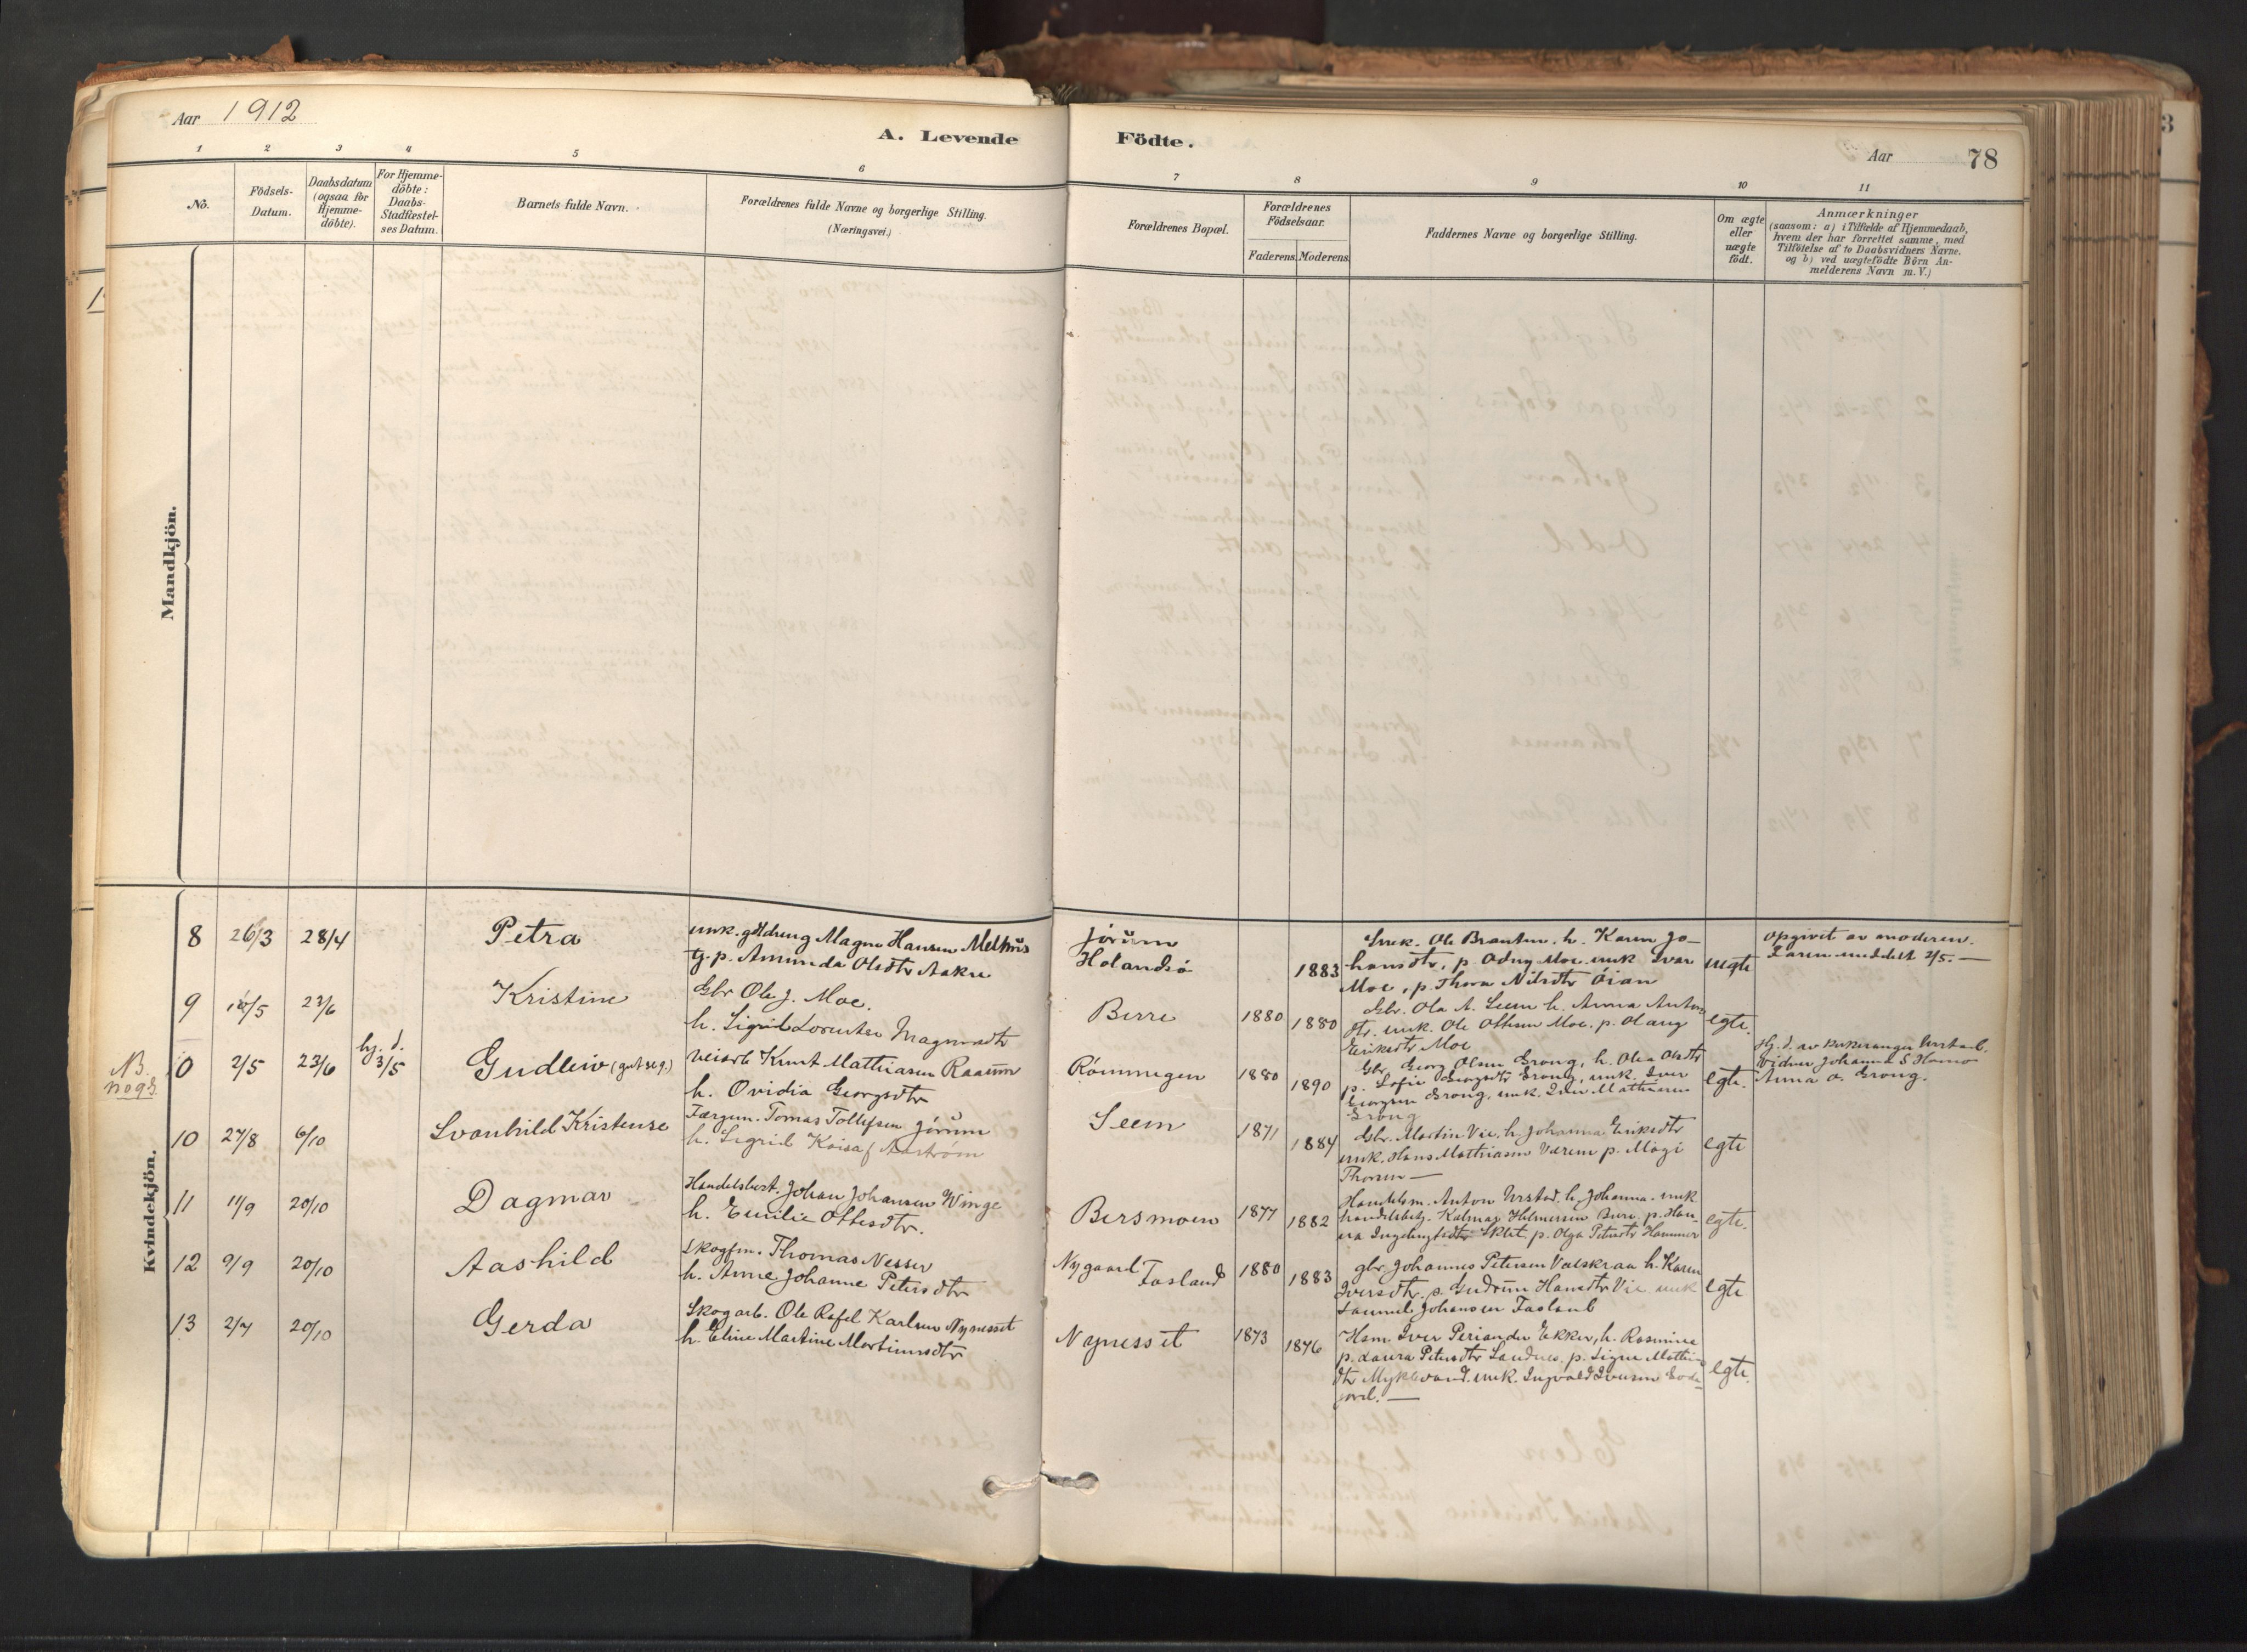 Aar 1912
A. Levende Födte.
Aar 78
1 2 3 4 5 6 7 8 9 10 11
No.
Födsels-
Datum.
Daabsdatum
(ogsaa for
Hjemme-
döbte).
For Hjemme-
döbte:
Daabs-
Stadfæstel-
ses Datum.
Barnets fulde Navn.
Forældrenes fulde Navne og borgerlige Stilling.
(Næringsvei.)
Forældrenes Bopæl.
Forældrenes
Födselsaar.
Faderens. Moderens.
Faddernes Navne og borgerlige Stilling.
Om ægte
eller
uægte
födt.
Anmærkninger
(saasom: a) i Tilfælde af Hjemmedaab,
hvem der har forrettet samme, med
Tilföielse af to Daabsvidners Navne.
og b) ved uægtefödte Börn An-
melderens Navn m. V.)
Mandkjön.
Kvindekjön.
8 26/3 28/4 Petra
umk. Magne Hansen Melhus
tg. p. Amunda Olsdtr Aakre
Jørum
Holandsø
1883
Smk. Ole Brauten. h. Karen Jo-
hansdtr, p. Odny Moe. umk Ivar
Moe, p. Thora Nilsdtr Öian
uegte
opgivet av moderen.
Faren meddelt 2/5. —
9 10/5 23/6 Kristine
Gbr Ole J. Moe.
h. Sigrid Lorentse Magnusdtr
Berre
1880 1880
Gbr. Ola A. Seem h. Anna Anton
dtr. umk. Ole Olsen Moe. p. Olaug
Eriksdtr Moe
egte.
NB.
0 2/5 23/6 hj. d. 3/5 Gudleiv
Veiarb Knut Mathiasen Raaum
h. Ovidia Georgsdtr
Rømmegen
1880 1890
Gbr Georg Olsen Grong, h. Olea Olsdtr
p. Sofie Georgsdtr Grong, umk. Iver
Georgsen Grong, umk. Iver Mathiasen
Grong
egte.
Hj. d. av
vidner Johanna S
Anna O. Grong.
10 27/8 6/10 Svanhild Kristense
Færgem. Tomas Tollefsen Jørum
h. Sigrid Kaisa f Aaström
Seem
1871 1884
Gbr. Martin Vie, h. Johanna Eriksdtr
umk. Hans Mathiasen Værem p. Magi
Thorsen —
egte
11 11/9 20/10 Dagmar
Handelsbest. Johan Johansen Winge
h. Emilie Ottesdtr.
Bersmoen
1877 1882
Handelsm. Anton Urstad. h. Johanna. umk
handelsbetj. Kalmar Helmersen Bure. p. Han-
na Ingebrigtsdtr Sklet p. Olga Petersdtr Hammer
egte.
12 9/9 20/10 Aashild
Skogfm. Thomas Nesser
h. Anne Johanne Petersdtr
Nygaard
Fosland
1880 1883
gbr. Johannes Petersen Valskraa h. Karen
Iversdtr. p. Gudrun Hansdtr Vie umk
Samuel Johansen Fosland
egte
13 2/7 20/10 Gerda
Skogarb. Ole Rafel Karlsen Nynesset
h. Eline Martine Martinusdtr
Nynesset
1873 1876
Hsm. Iver Periander Ekker, h. Rasmine
p. Laura Petersdtr Sandnes. p. Signe Mathias
dtr Myklevand. umk. Ingvald Iversen
egte.